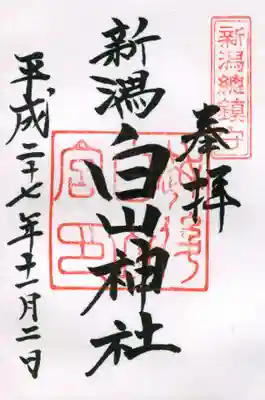 新潟総鎮守
奉拝
新潟白山神社
平成二十七年十一月二日